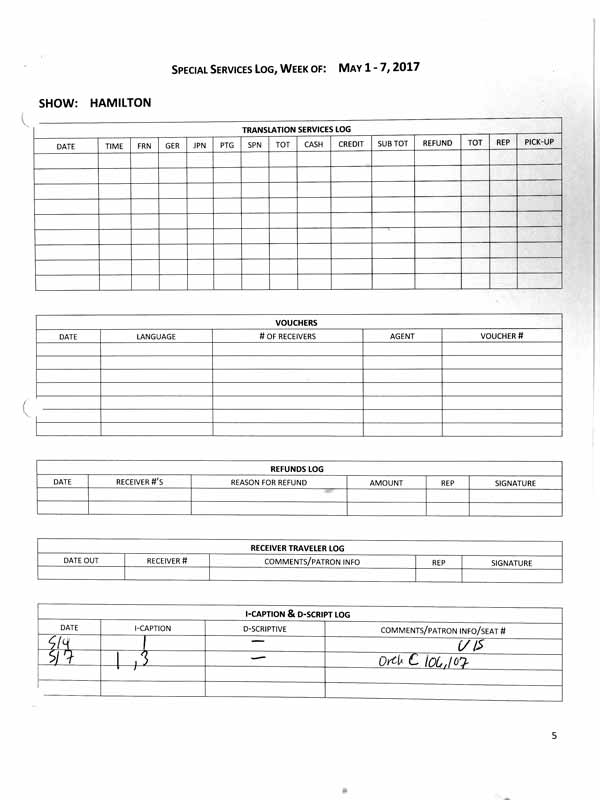 SPECIAL SERVICES LOG, WEEK OF: MAY 1 - 7, 2017
SHOW: HAMILTON
TRANSLATION SERVICES LOG
DATE TIME FRN GER JPN PTG SPN TOT CASH CREDIT SUB TOT REFUND TOT REP PICK-UP
VOUCHERS
DATE LANGUAGE # OF RECEIVERS AGENT VOUCHER #
REFUNDS LOG
DATE RECEIVER #'S REASON FOR REFUND AMOUNT REP SIGNATURE
RECEIVER TRAVELER LOG
DATE OUT RECEIVER # COMMENTS/PATRON INFO REP SIGNATURE
I-CAPTION & D-SCRIPT LOG
DATE I-CAPTION D-SCRIPTIVE COMMENTS/PATRON INFO/SEAT #
5/4 1 —
5/7 1,3 — Orch C 106,107
5